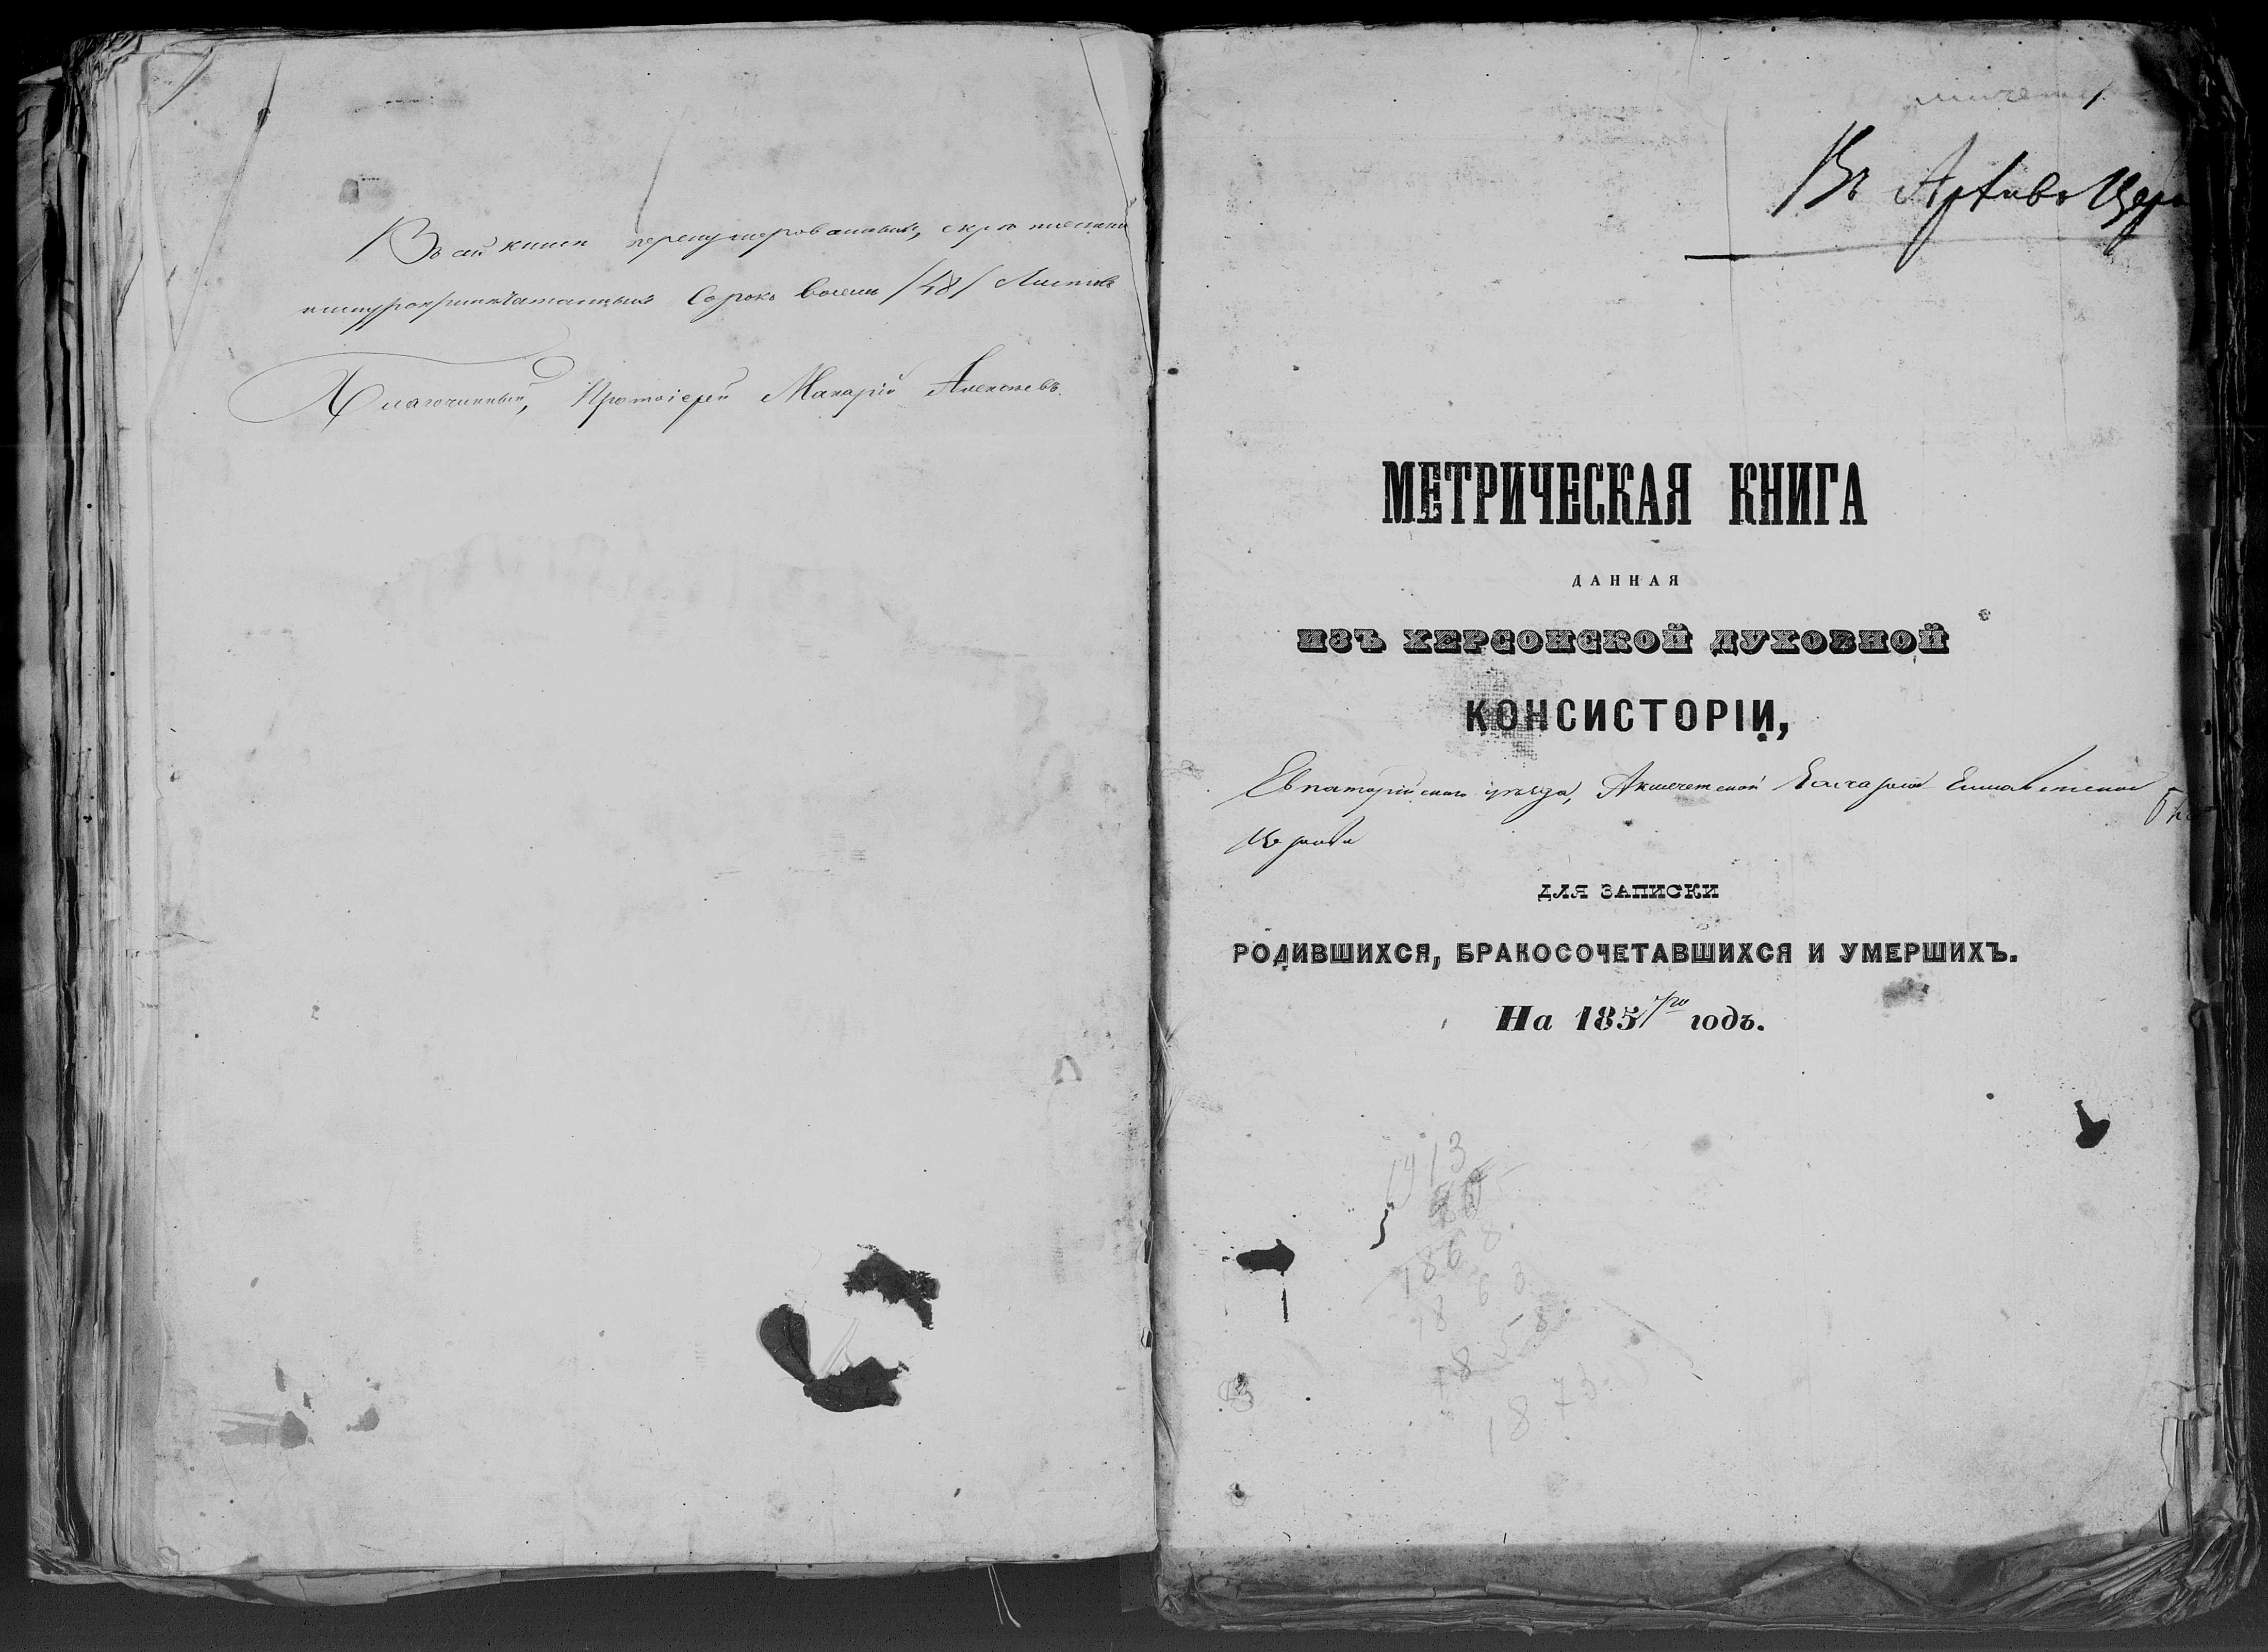 Въ сей книги перенумерованныхъ, скрепленныхъ
и шнуроприпечатанныхъ сорокъ восемь /48/ Листовъ
Благочинный, Протоіерей Макарій Алексѣевъ.
1.
Въ Архивъ Церк
МЕТРИЧЕСКАЯ КНИГА
ДАННАЯ
ИЗЪ ХЕРСОНСКОЙ ДУХОВНОЙ
КОНСИСТОРІИ,
Евпаторійскаго уѣзда, Акмечетской Захаріе Елисаветской
Церкви
ДЛЯ ЗАПИСКИ
РОДИВШИХСЯ, БРАКОСОЧЕТАВШИХСЯ И УМЕРШИХЪ.
На 185 годъ.
1913
1868
1863
1858
1873